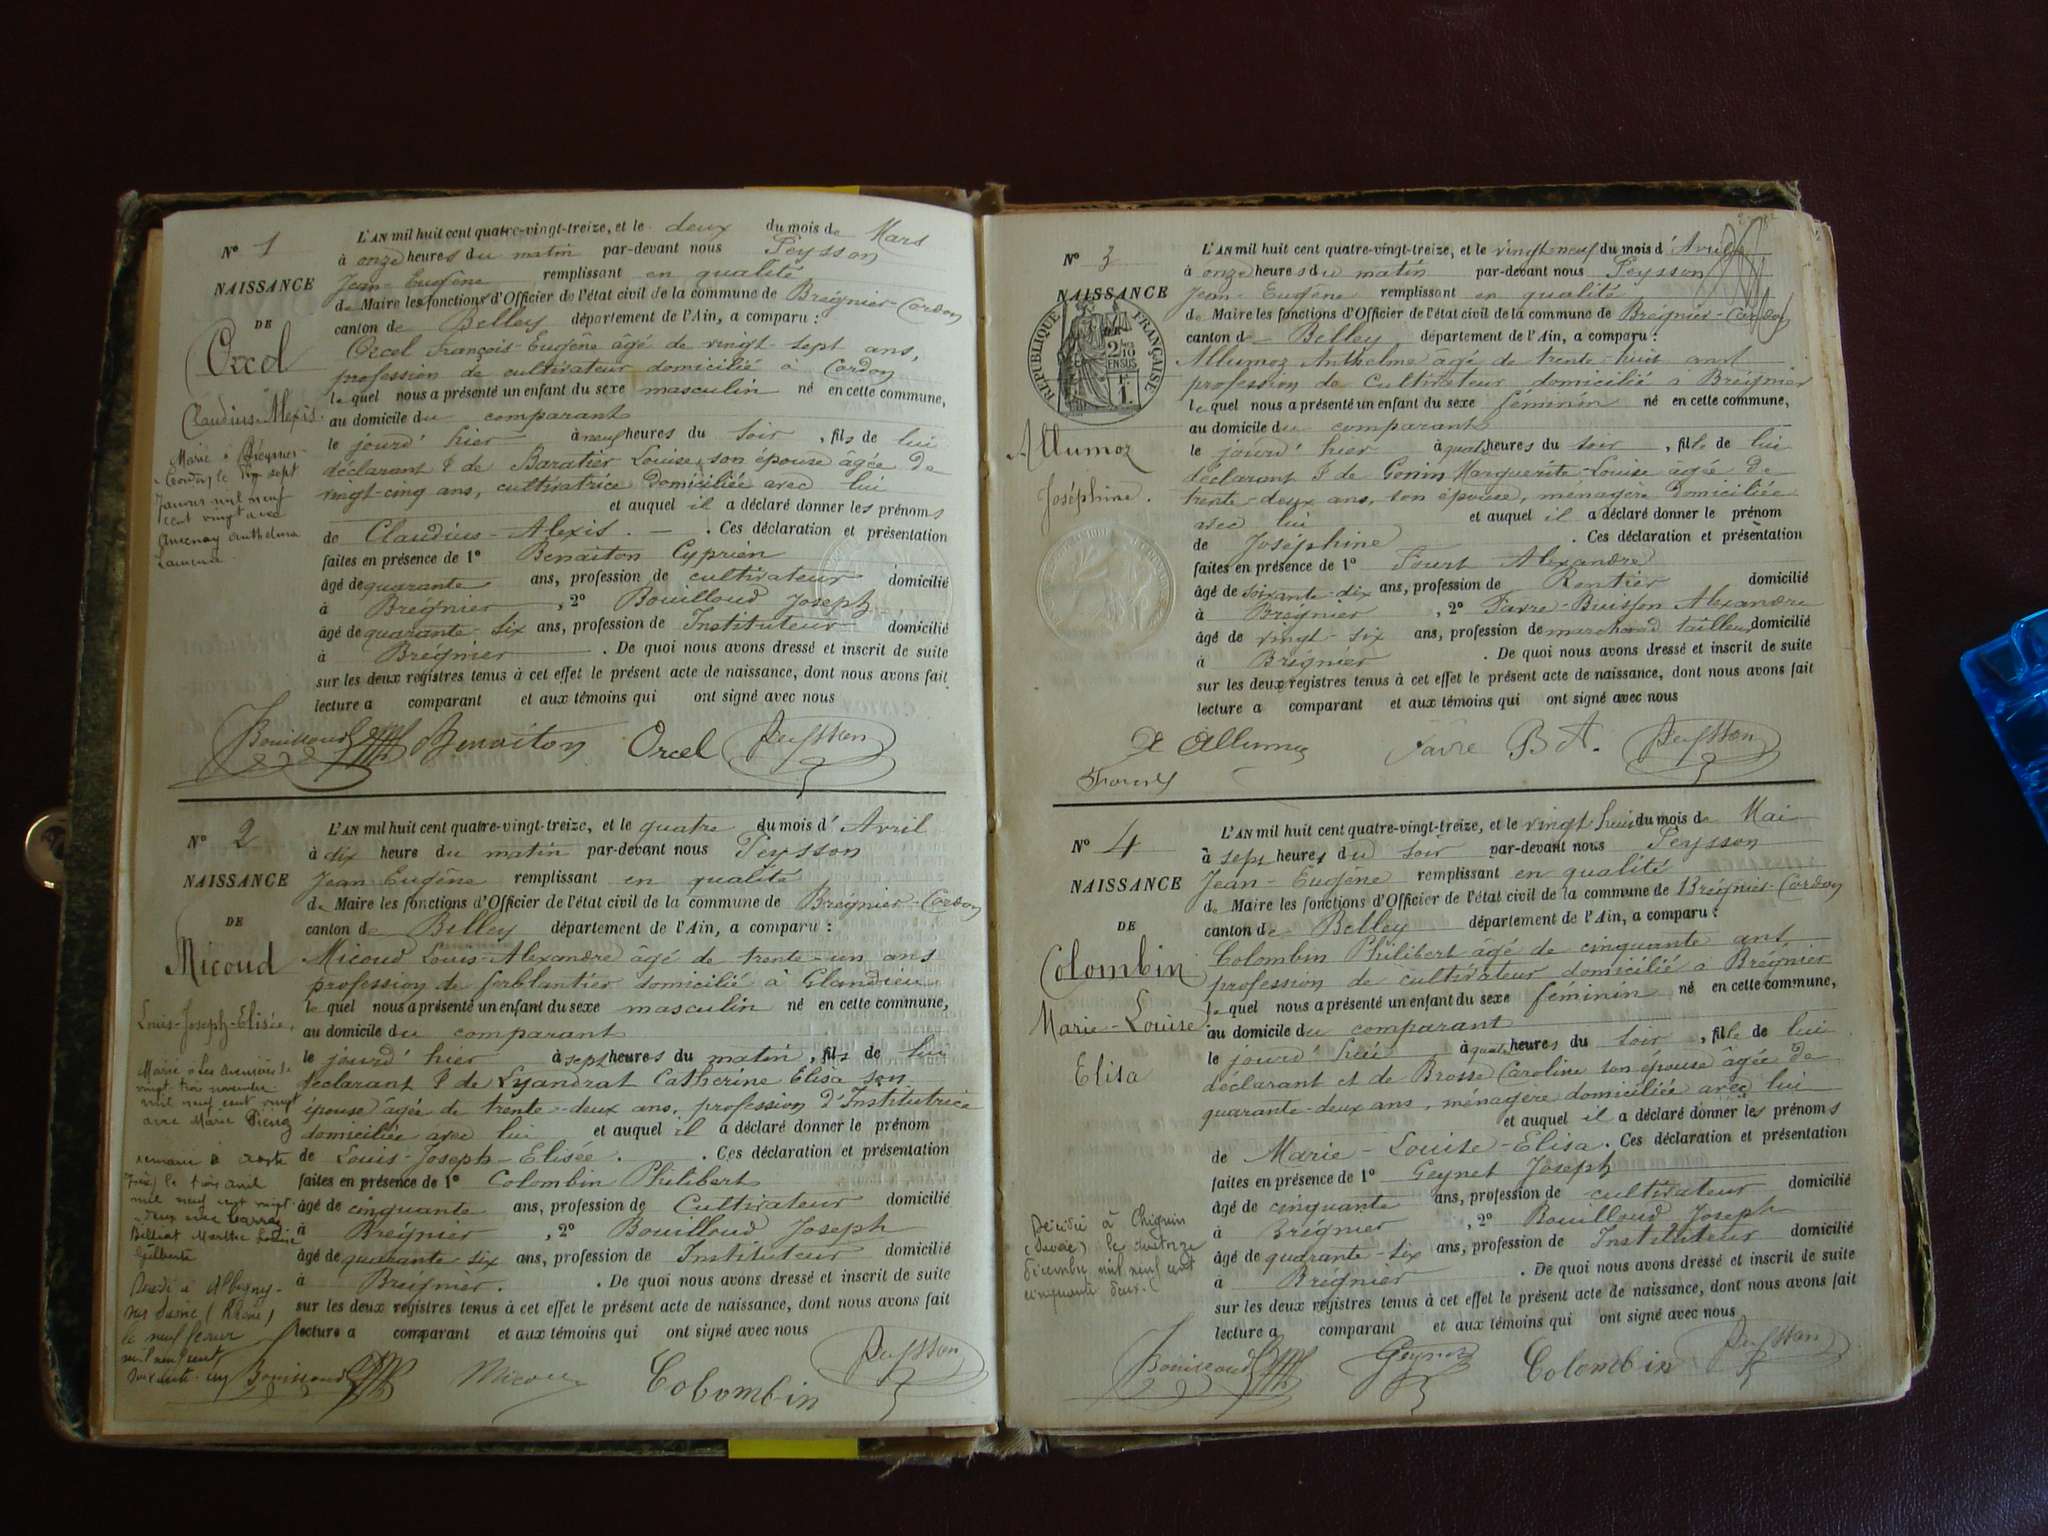 N° 1
NAISSANCE
DE
Orcel
Claudius-Alexis.
Marié à Brégnier-
Cordon le dix sept
Janvier mil neuf
cent vingt avec
Anthelma
L'AN mil huit cent quatre-vingt-treize, et le deux du mois de Mars
à onze heures du matin par-devant nous Peysson
Jean-Eugène remplissant en qualité
de Maire les fonctions d'Officier de l'état civil de la commune de Brégnier-Cordon
canton de Belley département de l'Ain, a comparu :
Orcel François-Eugène âgé de vingt-sept ans,
profession de cultivateur domicilié à Cordon
lequel nous a présenté un enfant du sexe masculin né en cette commune,
au domicile du comparant
le jourd'hier à neuf heures du soir, fils de lui
déclarant & de Baratier Louise, son épouse âgée de
vingt-cinq ans, cultivatrice domiciliée avec lui
et auquel il a déclaré donner les prénoms
de Claudius-Alexis. — . Ces déclaration et présentation
faites en présence de 1° Benaiton Cyprien
âgé de quarante ans, profession de cultivateur domicilié
à Brégnier , 2° Bouilloud Joseph
âgé de quarante-six ans, profession de Instituteur domicilié
à Brégnier . De quoi nous avons dressé et inscrit de suite
sur les deux registres tenus à cet effet le présent acte de naissance, dont nous avons fait
lecture a comparant et aux témoins qui ont signé avec nous
Bouilloud Benaiton Orcel Peysson
N° 2
NAISSANCE
DE
Micoud
Louis-Joseph-Elisée.
Marié à Les Avenières le
vingt trois novembre
mil neuf cent vingt
avec Marie
remarié à
le trois avril
mil neuf cent vingt-
deux avec
Billiat Marthe Louise
Gilberte
Décédé à Albigny-
sur Saône (Rhône)
le neuf février
mil neuf cent
soixante-un
L'AN mil huit cent quatre-vingt-treize, et le quatre du mois d'Avril
à dix heure du matin par-devant nous Peysson
Jean Eugène remplissant en qualité
de Maire les fonctions d'Officier de l'état civil de la commune de Brégnier-Cordon
canton de Belley département de l'Ain, a comparu :
Micoud Louis-Alexandre âgé de trente-un ans
profession de ferblantier domicilié à Glandieu
lequel nous a présenté un enfant du sexe masculin né en cette commune,
au domicile du comparant
le jourd'hier à sept heures du matin, fils de lui
déclarant & de Lyandrat Catherine Elisa son
épouse âgée de trente-deux ans, profession d'Institutrice
domiciliée avec lui et auquel il a déclaré donner le prénom
de Louis-Joseph-Elisée. . Ces déclaration et présentation
faites en présence de 1° Colombin Philibert
âgé de cinquante ans, profession de Cultivateur domicilié
à Brégnier , 2° Bouilloud Joseph
âgé de quarante six ans, profession de Instituteur domicilié
à Brégnier. . De quoi nous avons dressé et inscrit de suite
sur les deux registres tenus à cet effet le présent acte de naissance, dont nous avons fait
lecture a comparant et aux témoins qui ont signé avec nous
Bouilloud Micoud Colombin Peysson
N° 3
NAISSANCE
RÉPUBLIQUE FRANÇAISE
Allumoz
Joséphine.
L'AN mil huit cent quatre-vingt-treize, et le vingt neuf du mois d'Avril
à onze heures du matin par-devant nous Peysson
Jean-Eugène remplissant en qualité
de Maire les fonctions d'Officier de l'état civil de la commune de Brégnier-Cordon
canton de Belley département de l'Ain, a comparu :
Allumoz Anthelme âgé de trente-huit ans
profession de Cultivateur domicilié à Brégnier
lequel nous a présenté un enfant du sexe féminin né en cette commune,
au domicile du comparant
le jourd'hier à quatre heures du soir, fille de lui
déclarant & de Gonin Marguerite-Louise âgée de
trente-deux ans, son épouse, ménagère domiciliée
avec lui et auquel il a déclaré donner le prénom
de Joséphine . Ces déclaration et présentation
faites en présence de 1° Alexandre
âgé de soixante-dix ans, profession de Rentier domicilié
à Brégnier , 2° Favre-Buisson Alexandre
âgé de vingt-six ans, profession de marchand tailleur domicilié
à Brégnier . De quoi nous avons dressé et inscrit de suite
sur les deux registres tenus à cet effet le présent acte de naissance, dont nous avons fait
lecture a comparant et aux témoins qui ont signé avec nous
A Allumoz Favre B A. Peysson
N° 4
NAISSANCE
DE
Colombin
Marie-Louise
Elisa
Décédée à Chignin
(Savoie) le quatorze
décembre mil neuf cent
cinquante deux.
L'AN mil huit cent quatre-vingt-treize, et le vingt-huit du mois de Mai
à sept heures du soir par-devant nous Peysson
Jean-Eugène remplissant en qualité
de Maire les fonctions d'Officier de l'état civil de la commune de Brégnier-Cordon
canton de Belley département de l'Ain, a comparu :
Colombin Philibert âgé de cinquante ans
profession de cultivateur domicilié à Brégnier
lequel nous a présenté un enfant du sexe féminin né en cette commune,
au domicile du comparant
le jourd'hui à quatre heures du soir, fille de lui
déclarant et de Brosse Caroline son épouse âgée de
quarante-deux ans, ménagère domiciliée avec lui
et auquel il a déclaré donner les prénoms
de Marie-Louise-Elisa. Ces déclaration et présentation
faites en présence de 1° Geynet Joseph
âgé de cinquante ans, profession de cultivateur domicilié
à Brégnier , 2° Bouilloud Joseph
âgé de quarante-six ans, profession de Instituteur domicilié
à Brégnier . De quoi nous avons dressé et inscrit de suite
sur les deux registres tenus à cet effet le présent acte de naissance, dont nous avons fait
lecture a comparant et aux témoins qui ont signé avec nous
Bouilloud Geynet Colombin Peysson